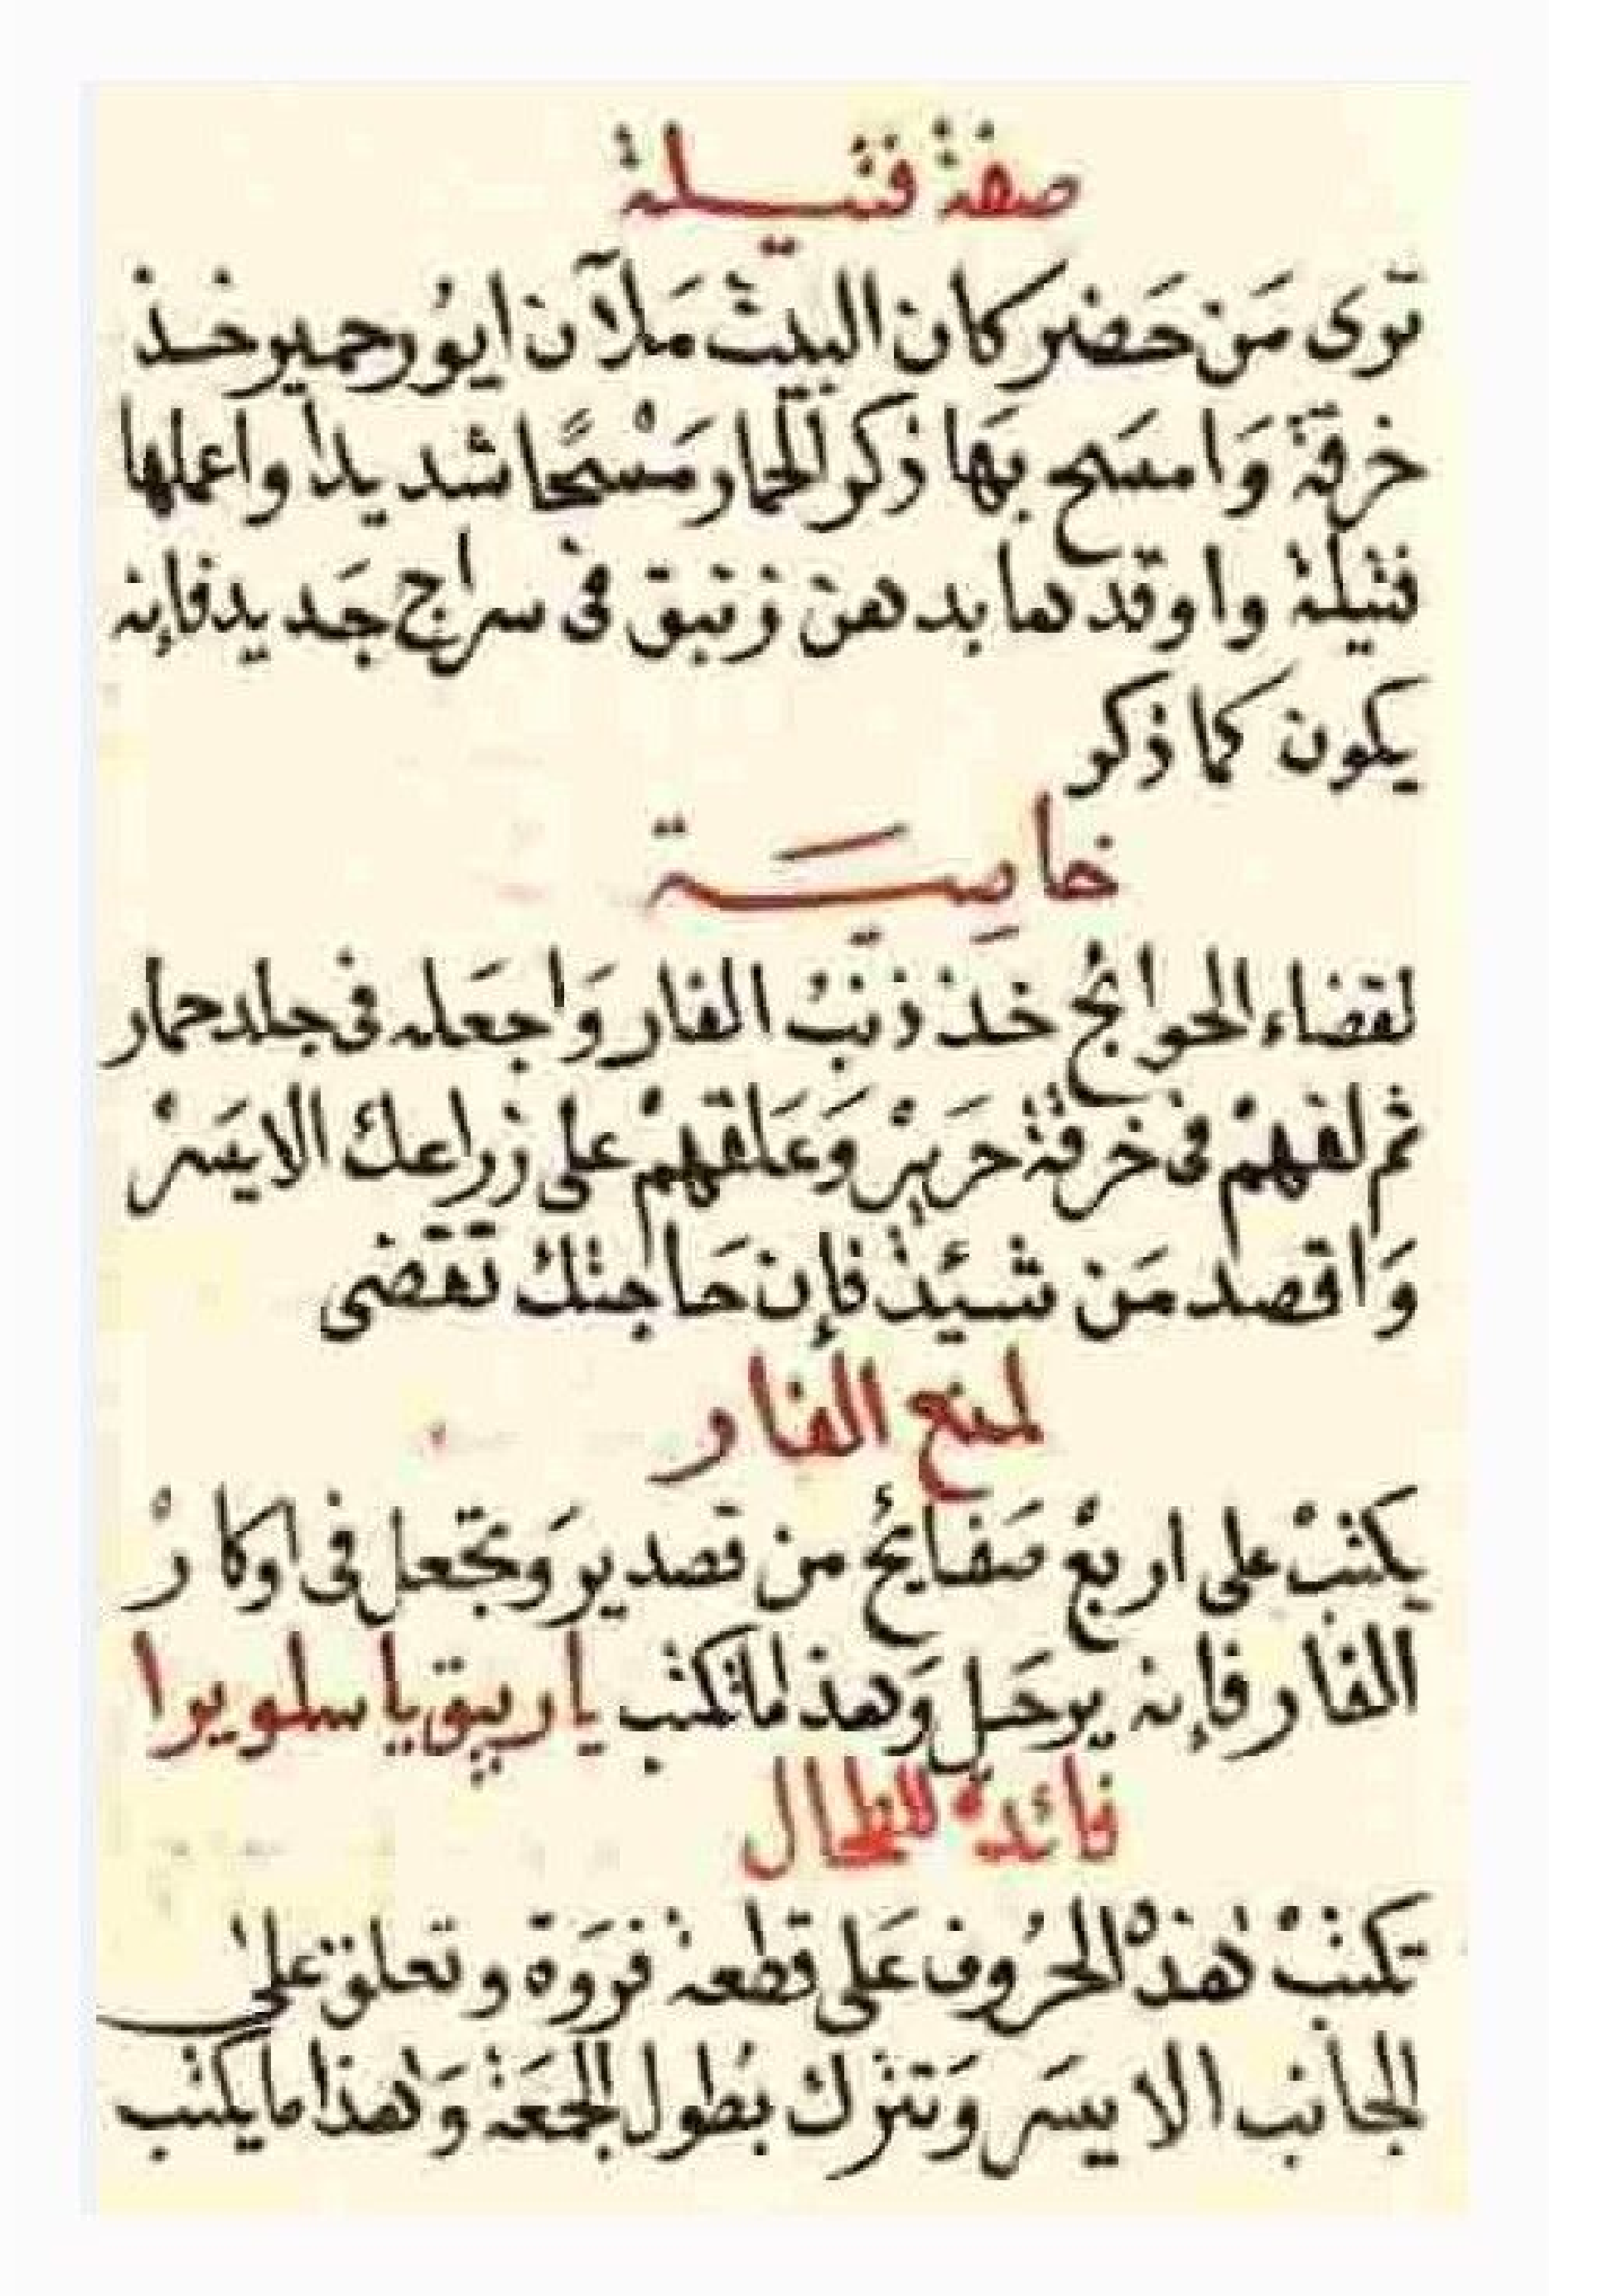 صفة فتيلة
ترى مَن حَضر كان البيت مَلآن ايُور حمير خذ
خرقة وَامسَح بهَا ذكر الحمار مَسْحًا شديدًا واعملها
فتيلة واوقدها بدهن زنبق فى سراج جَديد فإنه
يكون كما ذكر
خاصِيَّة
لقضاء الحوائج خذ ذنبُ الفار وَاجعَله فى جلد حمار
ثم لفهمْ فى خرقة حَريرْ وَعَلقهمْ على زراعك الايسَرْ
وَاقصد مَن شئت فإن حَاجتك تقضى
لمنع الفار
يكتبْ على اربعْ صَفايحْ من قصدير وَتجعل فى اوكارْ
الفار فإنه يرحَل وَهذا ماتكتب ياربيق يا سلويرا
فائدة للطحال
تكتبْ هٰذهْ الحُروف عَلى قطعة فروَة وتعلق على
الجانب الايسَر وَتترك بُطول الجمعَة وَهٰذا مايكتب